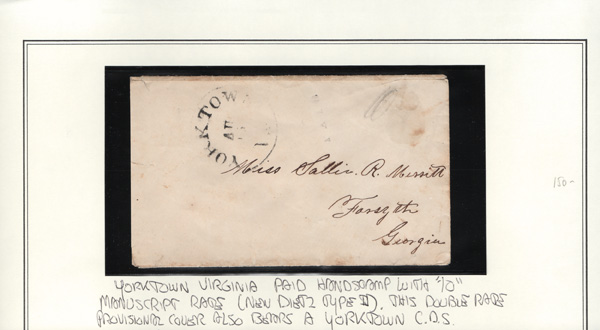 YORKTOWN
AU
1
Miss Sallie R. Merritt
Forsyth
Georgia
150-
YORKTOWN VIRGINIA PAID HANDSTAMP WITH "10"
MANUSCRIPT RATE (NEW DIETZ TYPE II), THIS DOUBLE RATE
PROVISIONAL COVER ALSO BEARS A YORKTOWN C.D.S.